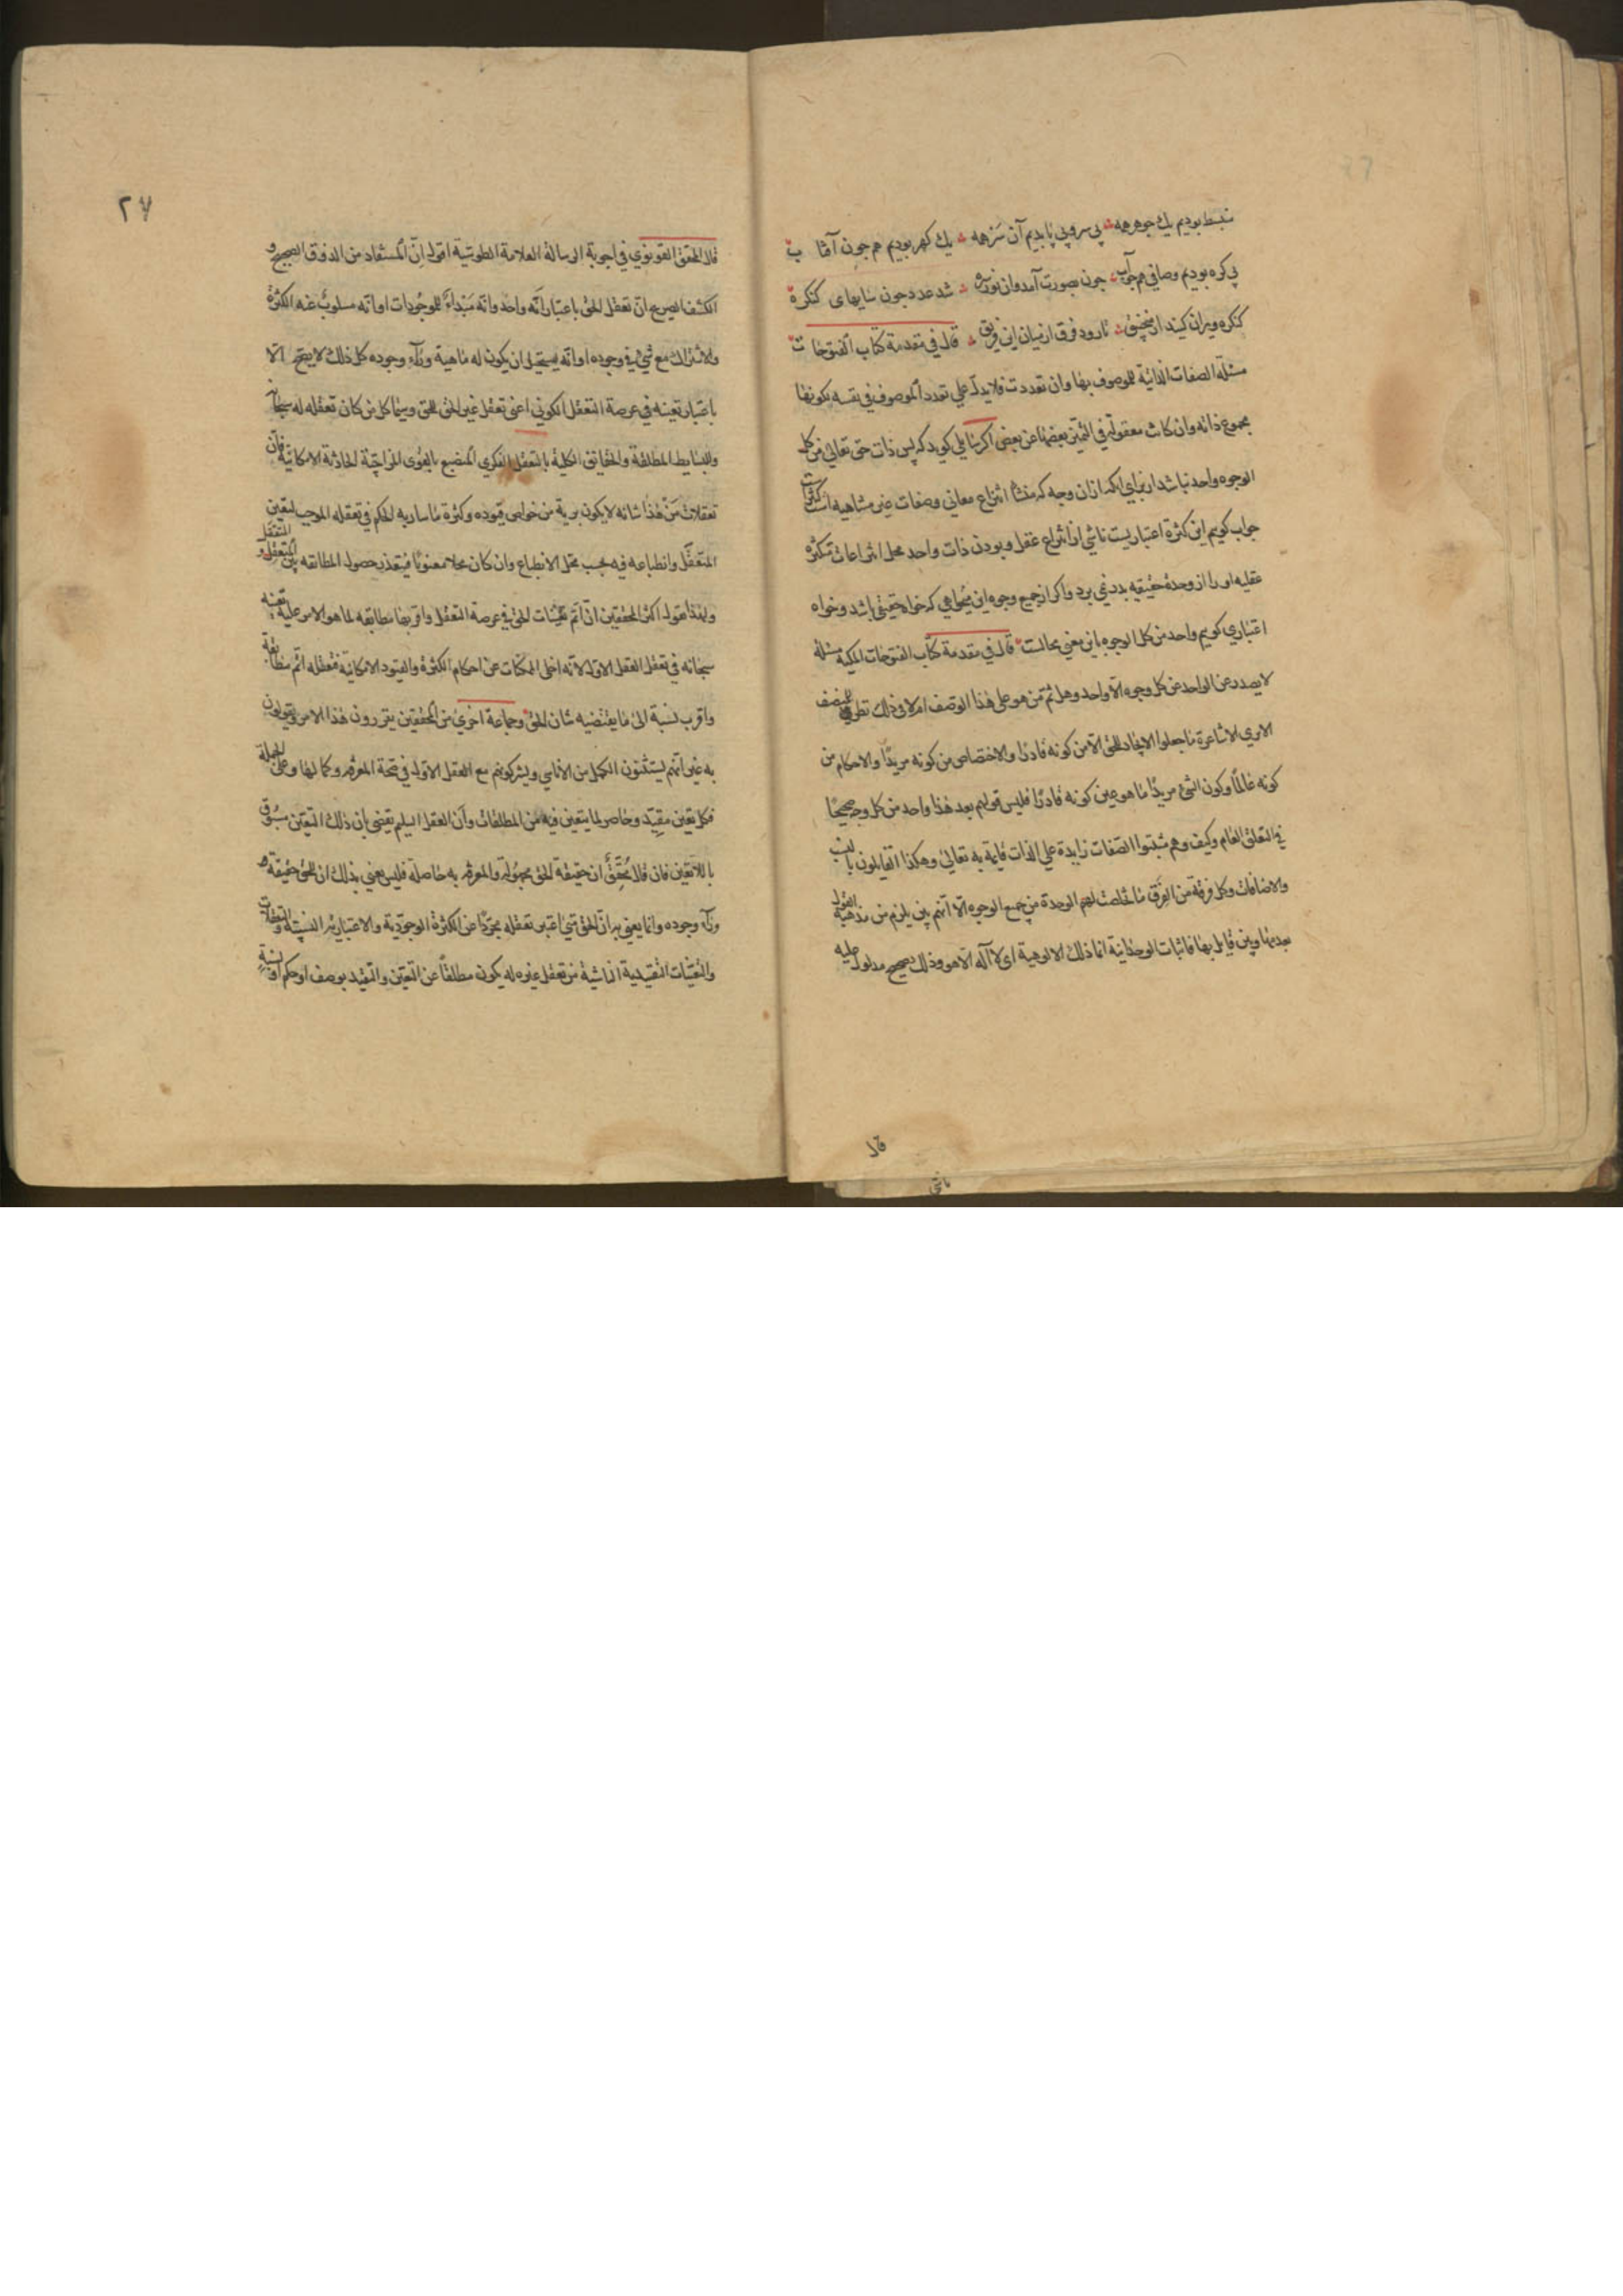 منبسط بودیم یك جوهر همه بی سر و بی پا بدیم آن سر همه یك كهر بودیم هم جون آفتاب
بی كره بودیم و صافی هم جو آب جون بصورت آمد وان نور سره شد عدد جون سایهای كنكره
كنكره ویران كنید از منجنیق تا رود فرق از میان این فریق قال فی مقدمة كتاب الفتوحات
مسئلة الصفات الذاتیة للموصوف بها وان تعددت فلا یدلّ علی تعدد الموصوف فی نفسه لكونها
مجموع ذاته وان كانت معقولة فی التمیّز بعضها عن بعض اكر سایلی كوید كه پس ذات حق تعالی من كل
الوجوه واحد نباشد از برای انكه ازان وجه كه منشأ انتزاع معانی وصفات غیر متناهیه است كثیر است
جواب كویم این كثرة اعتباریست ناشی از انتزاع عقل و بودن ذات واحد محل انتزاعات متكثره
عقلیه او را از وحدة حقیقیه بدر نمی برد واكر از جمیع وجوه این میخواهی كه خواه حقیقی باشد وخواه
اعتباری كویم واحد من كل الوجوه باین معنی محالست قال فی مقدمة كتاب الفتوحات المكیة مسئلة
لا یصدر عن الواحد من كل وجوه الّا واحد وهل ثمّ من هو علی هذا الوصف ام لا فی ذلك نظر للمنصف
الا تری الاشاعرة ما جعلوا الایجاد للحق الّا من كونه قادرًا والاختصاص من كونه مریدًا والاحكام من
كونه عالمًا وكون الشیء مریدًا ما هو عین كونه قادرًا فلیس قولهم بعد هذا واحد من كل وجه صحیحًا
فی التعلق العام وكیف وهم مثبتوا الصّفات زایدة علی الذات قایمة به تعالی وهكذا القایلون بالنسب
والاضافات وكل فرقة من الفرق ما تخلصت لهم الوحدة من جمیع الوجوه الّا انهم بین یلزم من مذهبه القول
بعدمها وبین قایل بها فاثبات الوحدانیة انما ذلك الالوهیة ای لا آله الّا هو وذلك صحیح مدلول علیه
قال
٢٧
قال المحقق القونوی فی اجوبة الرسالة العلامة الطوسیة اقول انّ المستفاد من الذوق الصحیح و
الكشف الصریح انّ تعقل الحق باعتبار انّه واحد وانّه مَبْدأٌ للموجودات او انّه مسلوبٌ عنه الكثرة
والاشتراك مع شیء فی وجوده او انّه یستحیل ان یكون له ماهیة ورآء وجوده كل ذلك لا یصح الّا
باعتبار تعینه فی عرصة التعقل الكونی اعنی تعقل غیر الحق للحق وسیما كل من كان تعقله له سبحانه
والبسایط المطلقة والحقایق الكلیة بالتعقل الفكری المنصبغ بالقوی المزاجیّة الحادثة الامكانیّة فانّ
تعقلات مَنْ هذا شانه لا یكون بریة من خواص قیوده وكثرة ما ساریه الحكم فی تعقله الموجب لتعین
المتعقَّل وانطباعه فیه بحسب محل الانطباع وان كان محلا معنویًا فیتعذر حصول المطابقه بین المتعقِّل والمتعقَّل
ولهذا یقول اكثر المحققین انّ اتم تعیّنات الحق فی عرصة التعقل واقربها مطابقه لما هو الامر علیه تعینه
سبحانه فی تعقل العقل الاول لانّه اخلی الممكنات عن احكام الكثرة والقیود الامكانیّة فتعقله اتم مطابقة
واقرب نسبة الی ما یقتضیه شان الحق وجماعة اخری من المحققین یقررون هذا الامر ویقولون
به غیر انّهم یستثنون الكمل من الاناسی ویشركونهم مع العقل الاول فی صحة المعرفه وكمالها وعلی الجملة
فكل تعین مقیِّد وحاصر لما یتعین فیه من المطلقات وانّ العقل السلیم یقضی بان ذلك التعین مسبوق
باللاتعین فان قال مُحقِّقٌ ان حقیقة الحق مجهولة والمعرفه به حاصلة فلیس یعنی بذلك ان للحق حقیقة
ورآء وجوده وانما یعنی به انّ الحق متی اعتبر تعقله مجرّدًا عن الكثرة الوجودیّة والاعتباریّه النسبیّة والتعقلات
والتعیّنات التقییدیة الناشیة من تعقل غیره له یكون مطلقاً عن التعیّن والتقید بوصف او حكم او نسبة